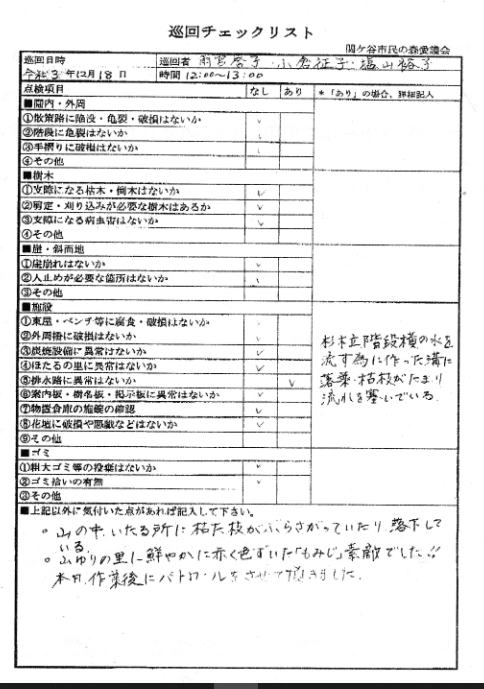 巡回チェックリスト
関ケ谷市民の森愛護会
巡回日時 巡回者 雨宮啓子・小倉征子・塩山裕子
令和3年12月18日 時間 12:00~13:00
点検項目 なし あり *「あり」の場合、詳細記入
■園内・外周
①散策路に陥没・亀裂・破損はないか ✓
②階段に亀裂はないか ✓
③手摺りに破損はないか ✓
④その他
■樹木
①支障になる枯木・倒木はないか ✓
②剪定・刈り込みが必要な樹木はあるか ✓
③支障になる病虫害はないか ✓
④その他
■崖・斜面地
①崖崩れはないか ✓
②人止めが必要な箇所はないか ✓
③その他
■施設
①東屋・ベンチ等に腐食・破損はないか ✓
②外周柵に破損はないか ✓
③炭焼設備に異常はないか ✓
④ほたるの里に異常はないか ✓
⑤排水路に異常はないか ✓
⑥案内板・樹名板・掲示板に異常はないか ✓
⑦物置倉庫の施錠の確認 ✓
⑧花壇に破損や悪戯などはないか ✓
⑨その他
杉木立階段横の水を
流す為に作った溝に
落葉・枯枝がたまり
流れを塞いでいる
■ゴミ
①粗大ゴミ等の投棄はないか ✓
②ゴミ拾いの有無 ✓
③その他
■上記以外に気付いた点があれば記入して下さい。
。山の中いたる所に枯た枝がぶらさがっていたり落下して
いる.
。山ゆりの里に鮮やかに赤く色ずいた「もみじ」素敵でした!!
本日、作業後にパトロールをさせて頂きました.